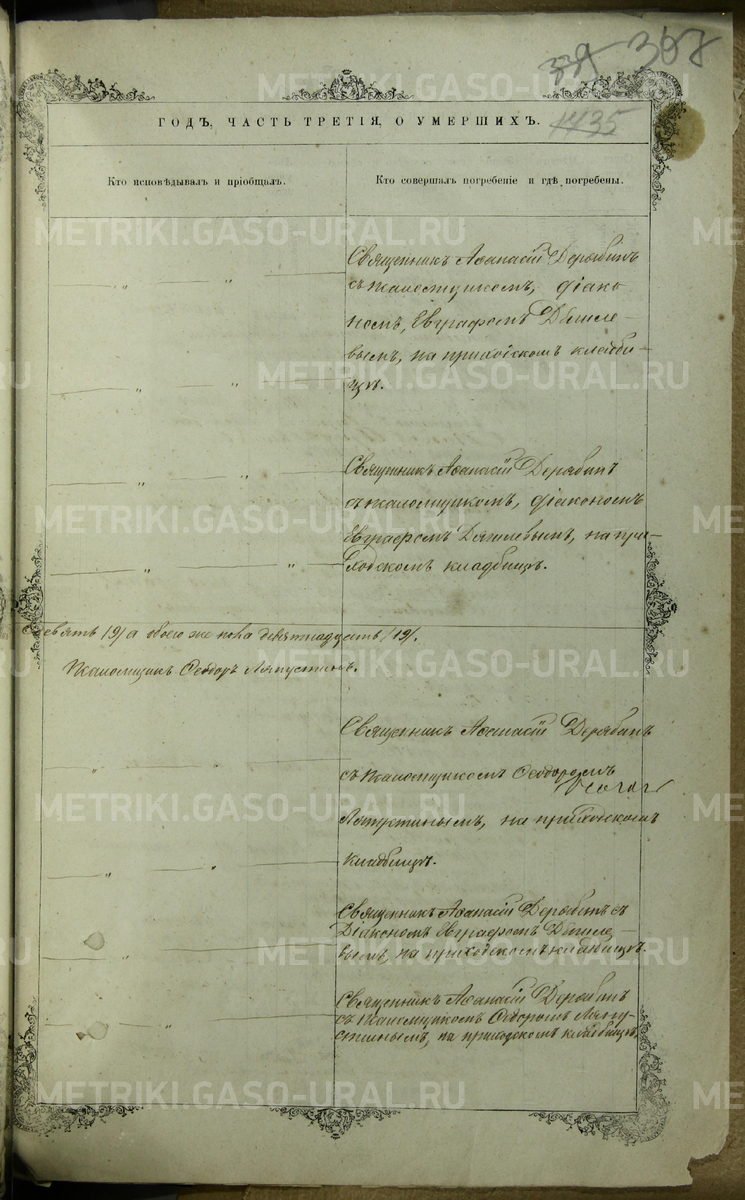 339 307
ГОДЪ, ЧАСТЬ ТРЕТІЯ, О УМЕРШИХЪ.
1435
Кто исповѣдывалъ и пріобщалъ.
Кто совершалъ погребеніе и гдѣ погребены.
Священникъ Аѳанасій Дерябинъ
съ псаломщикомъ, діако-
номъ, Евграфомъ
вымъ, на приходскомъ кладби-
щѣ.
Священникъ Аѳанасій Дерябинъ
съ псаломщикомъ, діакономъ
Евграфомъ на при-
ходскомъ кладбищѣ.
евять /9/ а обоего же пола девятнадцать /19/.
Псаломщикъ Ѳеодоръ Ляпустинъ.
Священникъ Аѳанасій Дерябинъ
съ псаломщикомъ Ѳеодоромъ
Ляпустинымъ, на приходскомъ
кладбищѣ.
Священникъ Аѳанасій Дерябинъ съ
Діакономъ Евграфомъ
вымъ, на приходскомъ кладбищѣ.
Священникъ Аѳанасій Дерябинъ
съ псаломщикомъ Ѳеодоромъ Ляпу-
стинымъ, на приходскомъ кладбищѣ.
METRIKI.GASO-URAL.RU